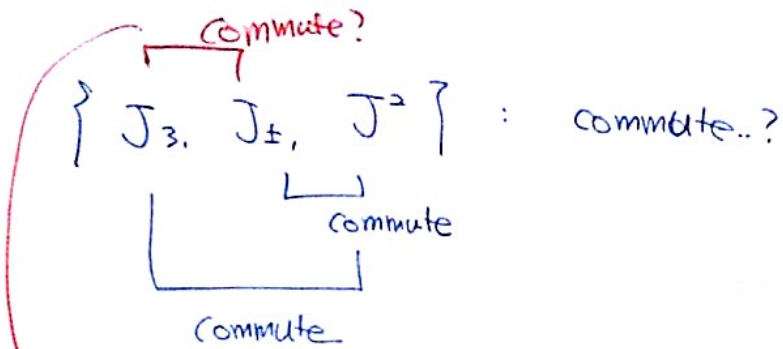 commute?
{ J3, J±, J² } : commute..?
commute
commute